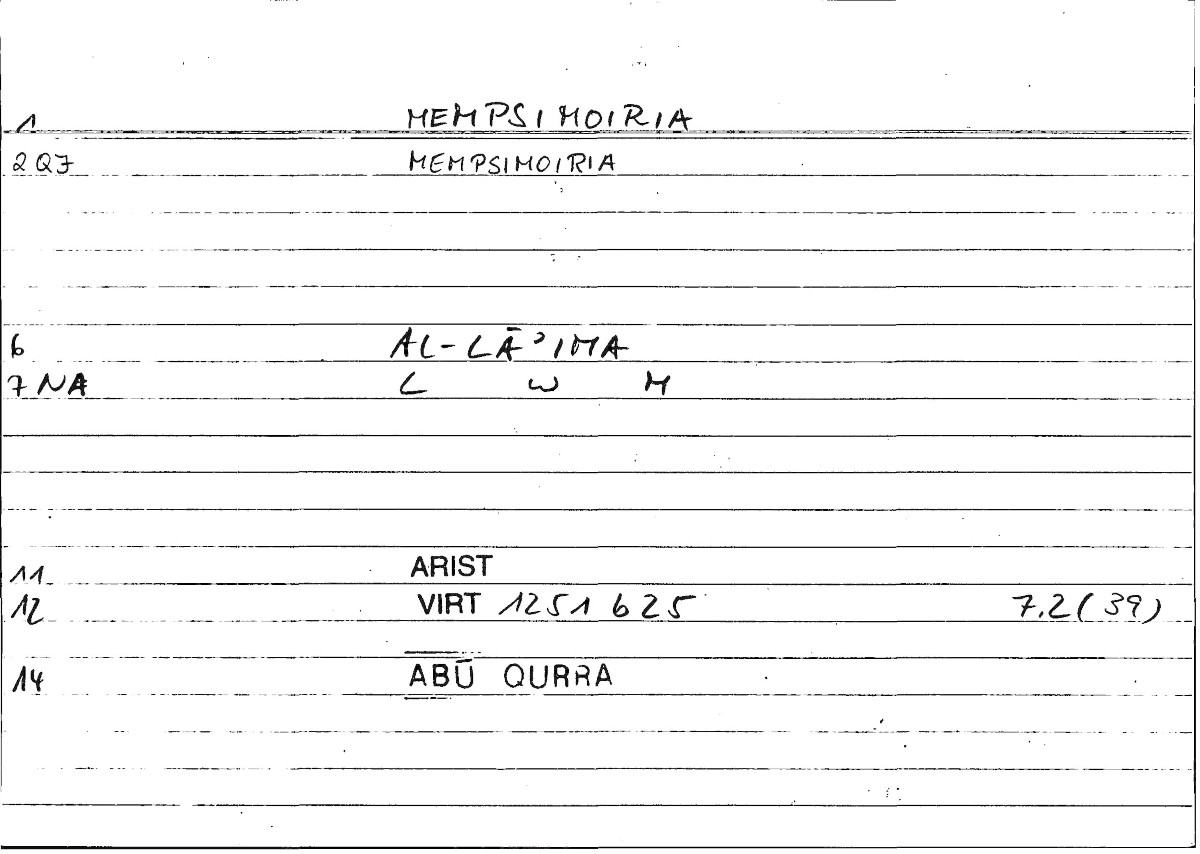 1 MEMPSIMOIRIA
2 Q7 MEMPSIMOIRIA
6 AL-LĀʾIMA
7 NA L W M
11 ARIST
12 VIRT 1251 625 7.2(39)
14 ABŪ QURRA